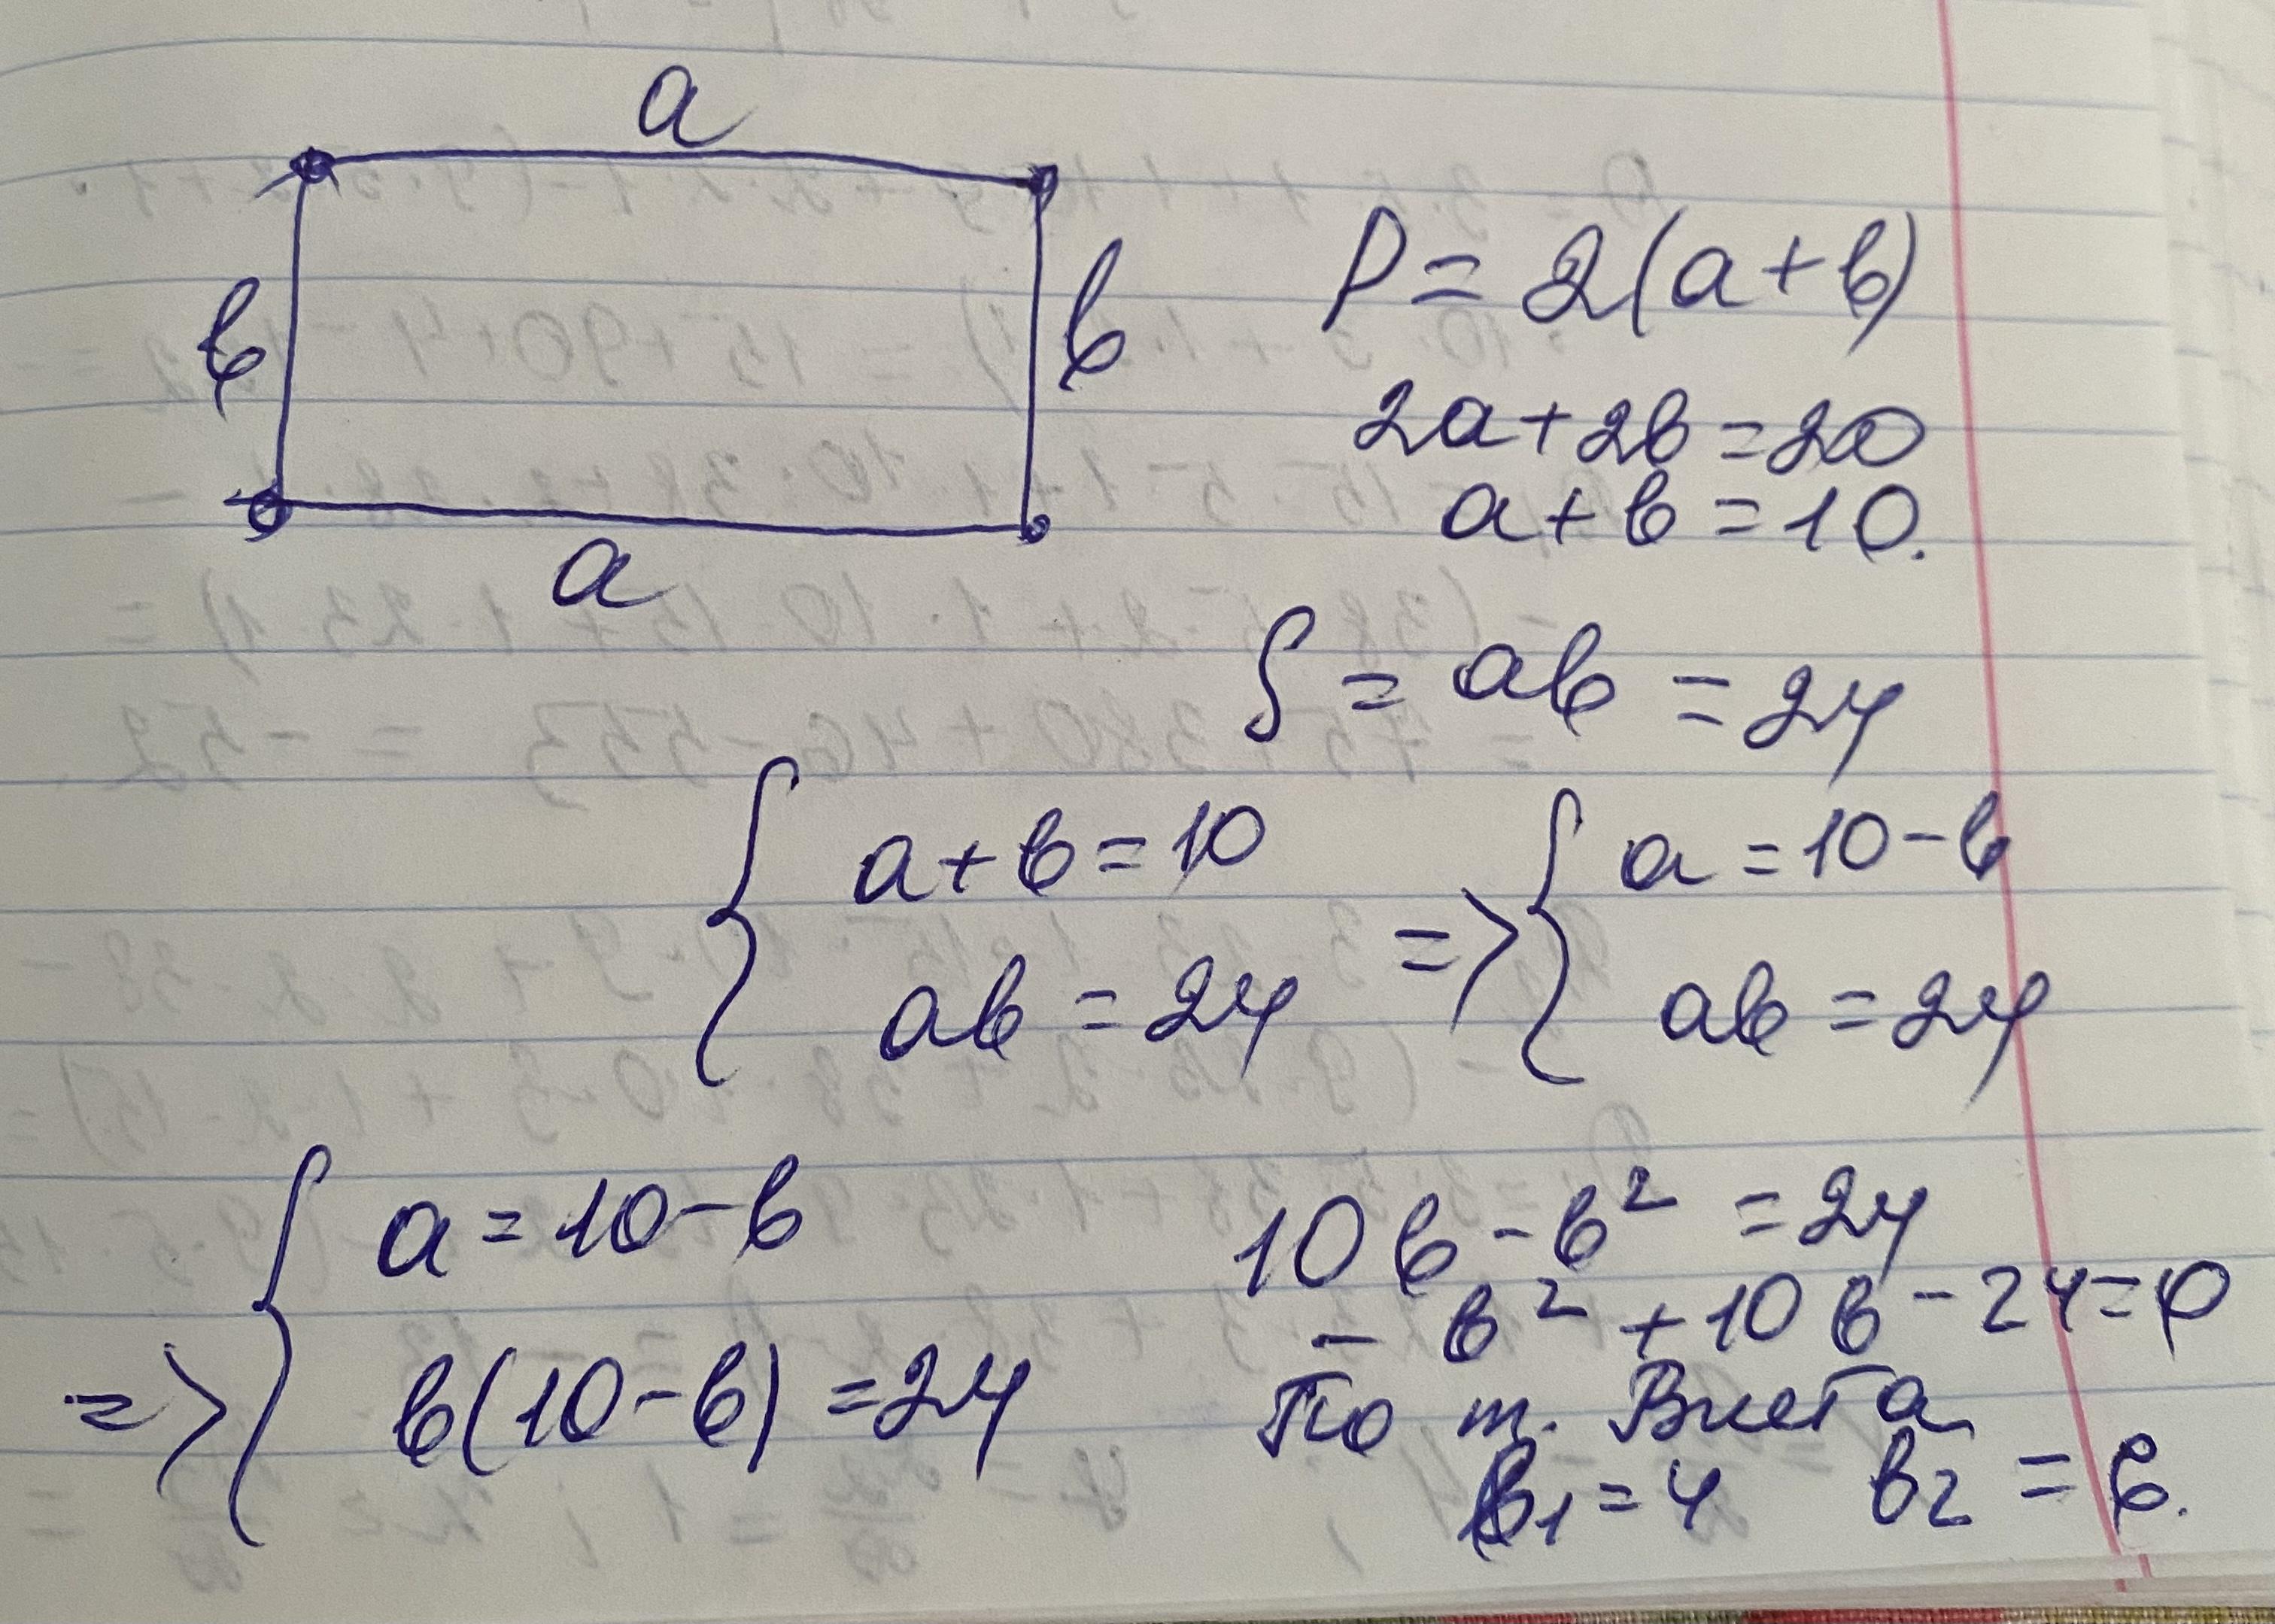 a
b
b
a
P = 2(a+b)
2a+2b=20
a+b=10.
S = ab = 24
{ a+b=10 => { a=10-b
ab=24 ab=24
=> { a=10-b
b(10-b)=24
10b-b² =24
-b²+10b-24=0
По т. Виета
b₁=4 b₂=6.